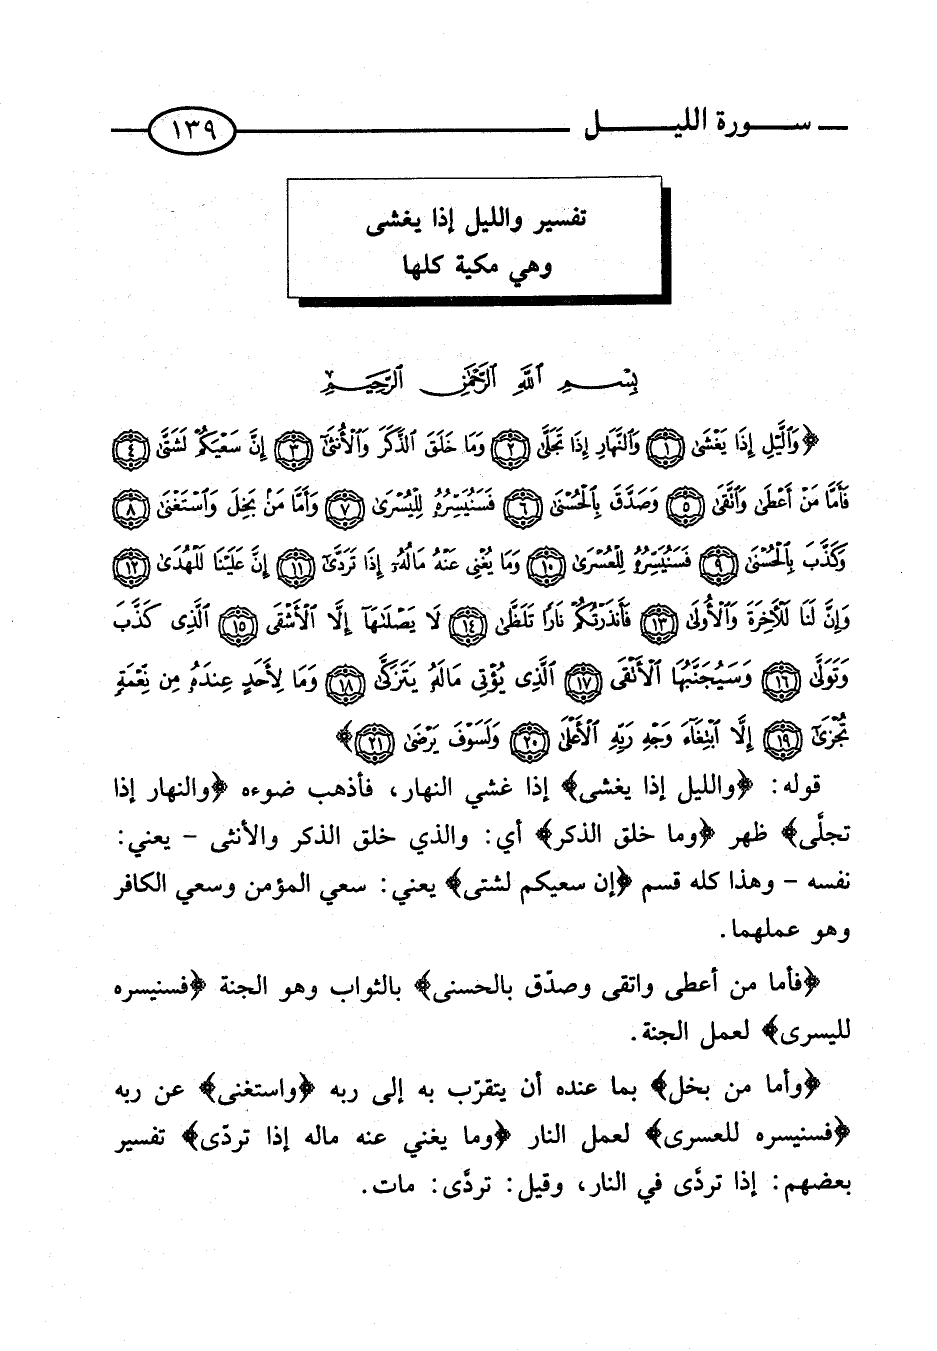 سورة الليل ١٣٩
تفسير والليل إذا يغشى
وهي مكية كلها
بِسْمِ اللَّهِ الرَّحْمَٰنِ الرَّحِيمِ
﴿وَٱلَّيْلِ إِذَا يَغْشَىٰ ١ وَٱلنَّهَارِ إِذَا تَجَلَّىٰ ٢ وَمَا خَلَقَ ٱلذَّكَرَ وَٱلْأُنثَىٰٓ ٣ إِنَّ سَعْيَكُمْ لَشَتَّىٰ ٤
فَأَمَّا مَنْ أَعْطَىٰ وَٱتَّقَىٰ ٥ وَصَدَّقَ بِٱلْحُسْنَىٰ ٦ فَسَنُيَسِّرُهُۥ لِلْيُسْرَىٰ ٧ وَأَمَّا مَنۢ بَخِلَ وَٱسْتَغْنَىٰ ٨
وَكَذَّبَ بِٱلْحُسْنَىٰ ٩ فَسَنُيَسِّرُهُۥ لِلْعُسْرَىٰ ١٠ وَمَا يُغْنِى عَنْهُ مَالُهُۥٓ إِذَا تَرَدَّىٰٓ ١١ إِنَّ عَلَيْنَا لَلْهُدَىٰ ١٢
وَإِنَّ لَنَا لَلْآخِرَةَ وَٱلْأُولَىٰ ١٣ فَأَنذَرْتُكُمْ نَارًا تَلَظَّىٰ ١٤ لَا يَصْلَىٰهَآ إِلَّا ٱلْأَشْقَى ١٥ ٱلَّذِى كَذَّبَ
وَتَوَلَّىٰ ١٦ وَسَيُجَنَّبُهَا ٱلْأَتْقَى ١٧ ٱلَّذِى يُؤْتِى مَالَهُۥ يَتَزَكَّىٰ ١٨ وَمَا لِأَحَدٍ عِندَهُۥ مِن نِّعْمَةٍ
تُجْزَىٰٓ ١٩ إِلَّا ٱبْتِغَآءَ وَجْهِ رَبِّهِ ٱلْأَعْلَىٰ ٢٠ وَلَسَوْفَ يَرْضَىٰ ٢١﴾
قوله: ﴿والليل إذا يغشى﴾ إذا غشي النهار، فأذهب ضوءه ﴿والنهار إذا
تجلَّى﴾ ظهر ﴿وما خلق الذكر﴾ أي: والذي خلق الذكر والأنثى - يعني:
نفسه - وهذا كله قسم ﴿إن سعيكم لشتى﴾ يعني: سعي المؤمن وسعي الكافر
وهو عملهما.
﴿فأما من أعطى واتقى وصدّق بالحسنى﴾ بالثواب وهو الجنة ﴿فسنيسره
لليسرى﴾ لعمل الجنة.
﴿وأما من بخل﴾ بما عنده أن يتقرّب به إلى ربه ﴿واستغنى﴾ عن ربه
﴿فسنيسره للعسرى﴾ لعمل النار ﴿وما يغني عنه ماله إذا تردّى﴾ تفسير
بعضهم: إذا تردَّى في النار، وقيل: تردَّى: مات.